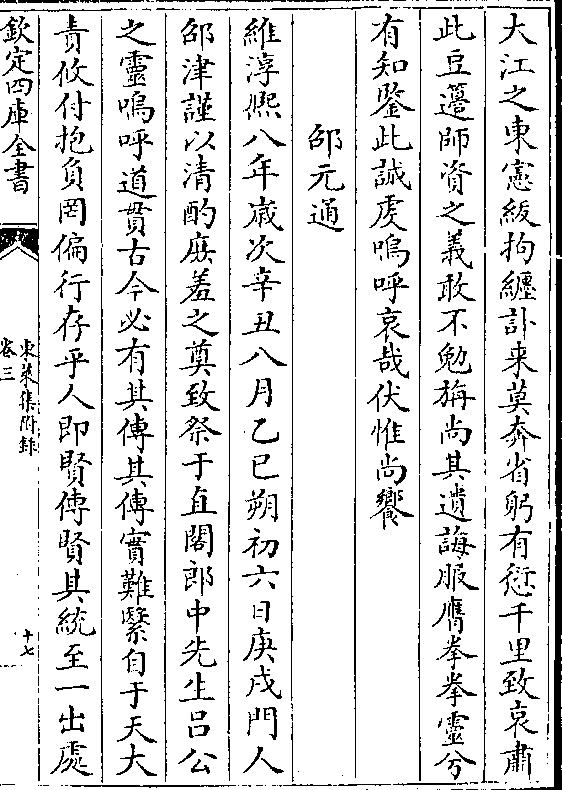 大江之東憲紱拘纏訃来莫奔省躬有愆千里致哀肅
此豆籩師資之義敢不勉旃尚其遺誨服膺拳拳靈兮
有知鑒此誠虔嗚呼哀哉伏惟尚饗
邵元通
維淳熈八年歳次辛丑八月乙巳朔初六日庚戌門人
邵津謹以清酌庶羞之奠致祭于直閣郎中先生吕公
之靈嗚呼道貫古今必有其傳其傳實難繄自于天大
責攸付抱負罔偏行存乎人即賢傳賢其統至一出處
欽定四庫全書
東萊集附録
卷三
十七